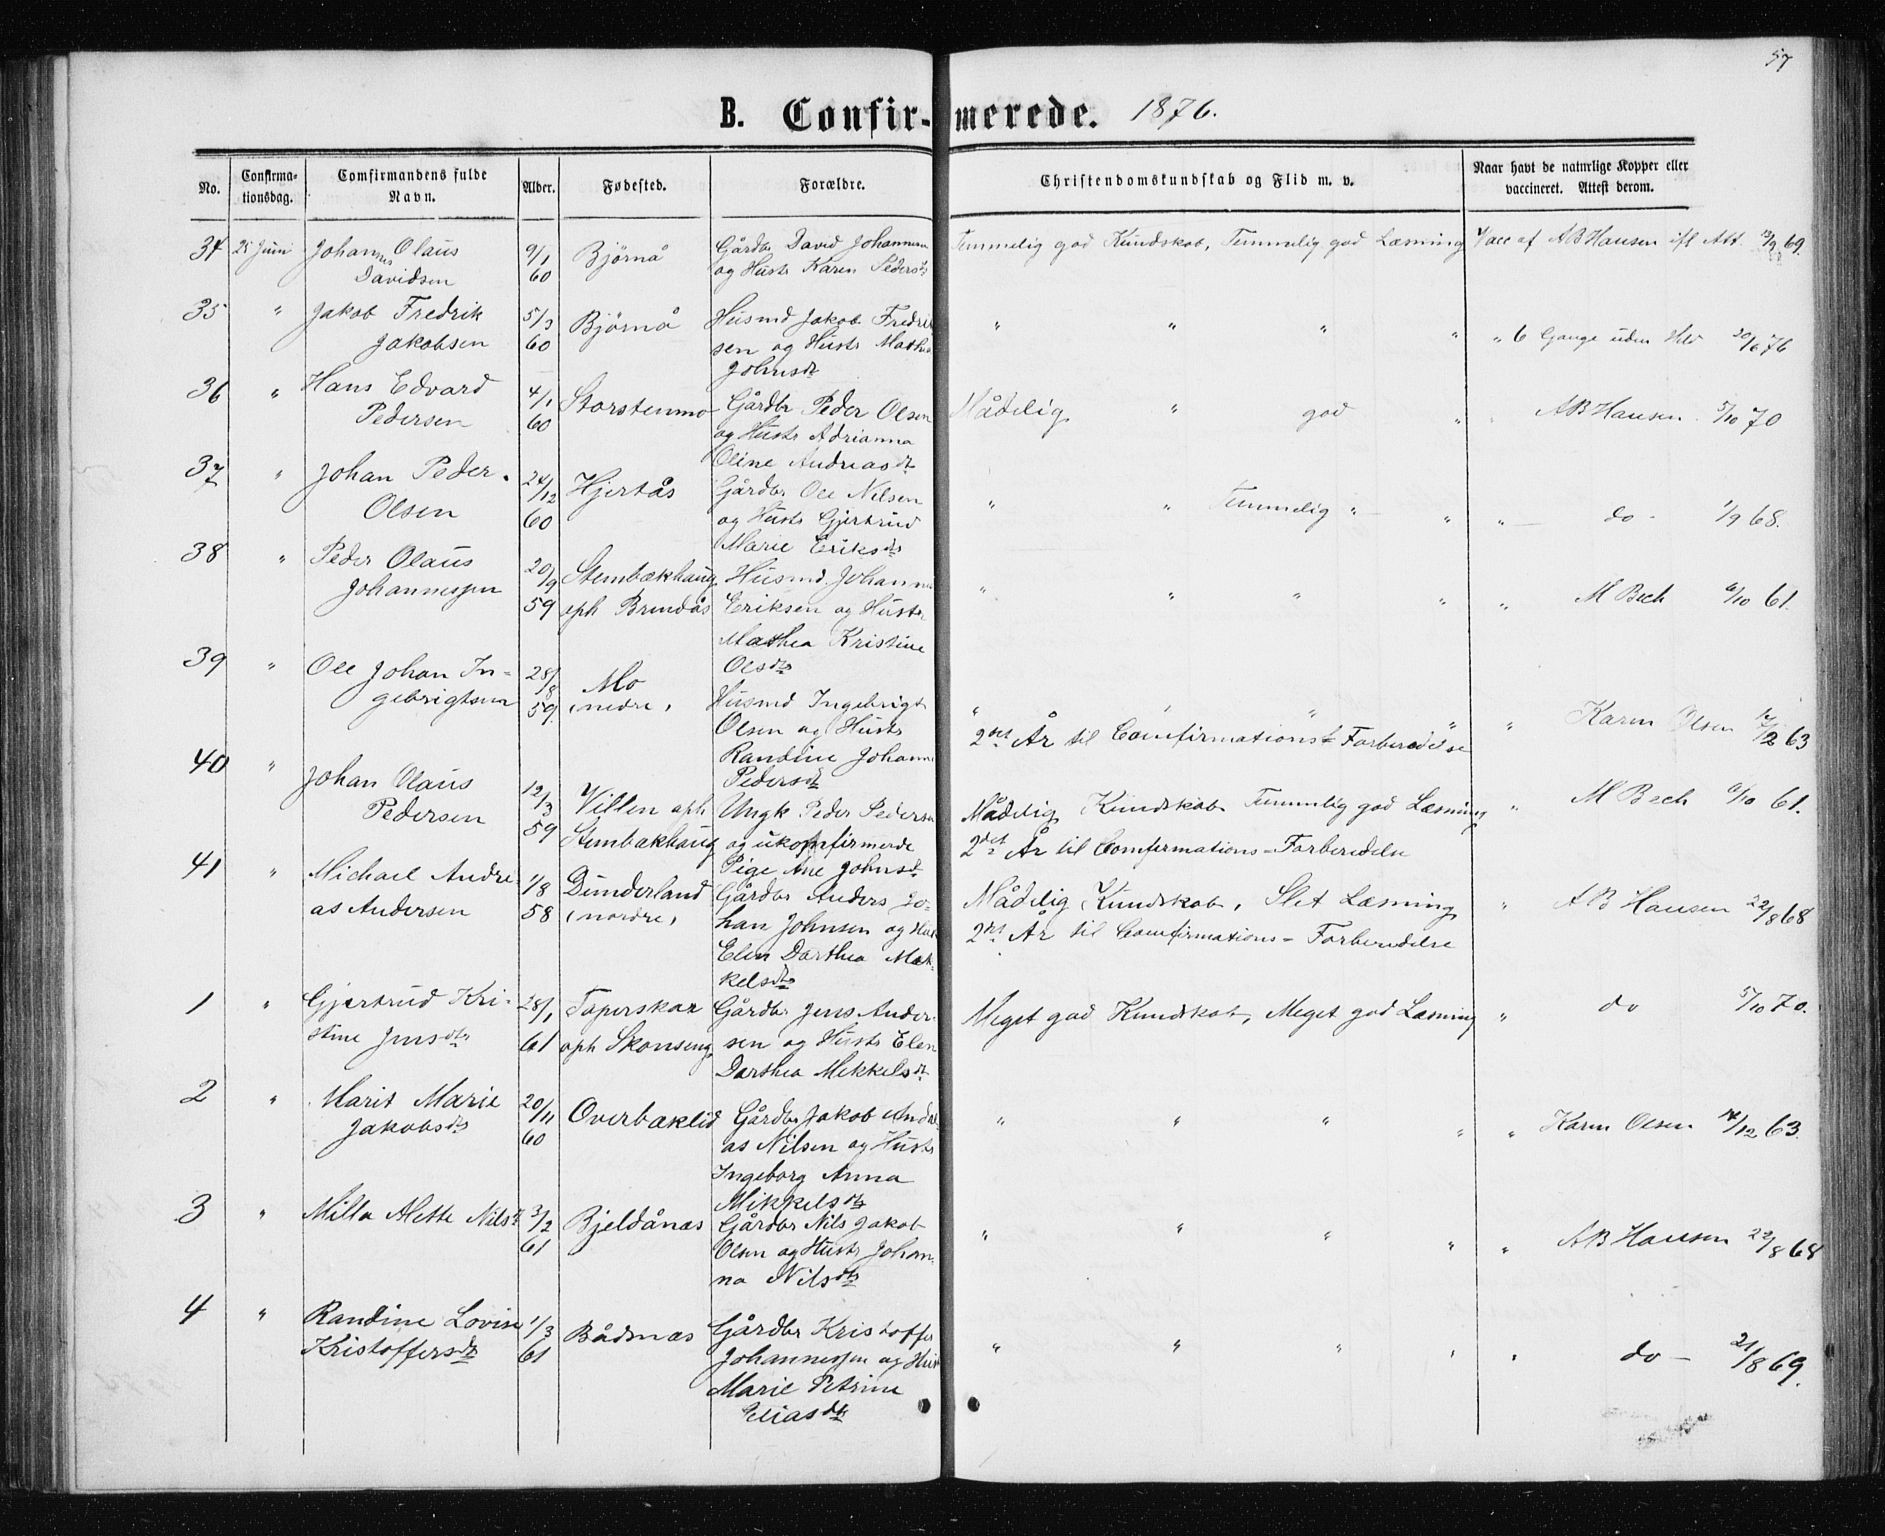 57
B. Confirmerede. 1876.
No. Confirmationsdag. Comfirmandens fulde Navn. Alder. Fødested. Forældre. Christendomskundskab og Flid m. v. Naar havt de naturlige Kopper eller vaccineret. Attest derom.
34 25 Juni Johannes Olaus 9/1 Björnå Gårdbr David Johannesen Temmelig god Kundskab, Temmelig god Læsning Vacc af AB Hansen ifl Att 69.
Davidsen 60 og Hustr Karen Pedersdtr
35 " Jakob Fredrik 5/3 Björnå Husmd Jakob Fredrik " " " " " 6 Gange uden 20/6 76
Jakobsen 60 sen og Hustr
Johnsdtr
36 " Hans Edvard 4/1 Storstenmo Gårdbr Peder Olsen Mådelig " god " " AB Hansen 5/10 70
Pedersen 60 og Hustr Adrianna
Oline Andreasdtr
37 " Johan Peder 24/12 Hjertås Gårdbr Ole Nilsen " " Temmelig " " " do 1/9 68.
Olsen 60 og Hustr Gjertrud
Marie Eriksdtr
38 " Peder Olaus 20/9 Stenbækhaug Husmd. Johannes " " " " " M Bech 6/10 61.
Johannessen 59 oph Brendås Eriksen og Hustr
Mathea Kristine
Olsdtr
39 " Ole Johan In- 28/8 Mo Husmd Ingebrigt " " " " " Karen Olsen 63
gebrigtsen 59 (nedre) Olsen og Hustr 2det År til Comfirmations-Forberedelse
Randine Johanna
Pedersdtr
40 " Johan Olaus 12/3 Villen oph Ungk Peder Pedersen Mådelig Kundskab Temmelig god Læsning " M Bech 6/10 61.
Pedersen 59 Stenbækhaug og ukomfirmerde 2det År til Comfirmations-Forberedelse
Pige Ane Johnsdtr
41 " Michael Andre- 1/8 Dunderland Gårdbr Anders Jo- Mådelig Kundskab, Slet Læsning " AB Hansen 22/8 68
as Andersen 58 (nordre) han Johnsen og Hustr 2det År til Comfirmations-Forberedelse
Elen Dorthea Mek-
kelsdtr
1 " Gjertrud Kri- 28/1 Toperskar Gårdbr Jens Ander- Meget god Kundskab, Meget god Læsning " do 5/10 70.
stine Jensdtr 61 oph Skonseng sen og Hustr Elen
Dorthea Mekkelsdtr
2 " Marit Marie 20/11 Overbæklid Gårdbr Jakob Andre- " " " " " Karen Olsen 14/12 63.
Jakobsdtr 60 as Nilsen og Hustr
Ingeborg Anna
Mikkelsdtr
3 " Milla Alette Nilsdtr 3/2 Bjeldånæs Gårdbr Nils Jakob " " " " " AB Hansen 22/8 68
61 Olsen og Hustr Johan-
na Nilsdtr
4 " Randine Lovise 1/3 Bådsnæs Gårdbr Kristoffer " " " " " do 21/8 69.
Kristoffersdtr 61 Johannessen og Hustr
Marie Petrine
Eliasdtr